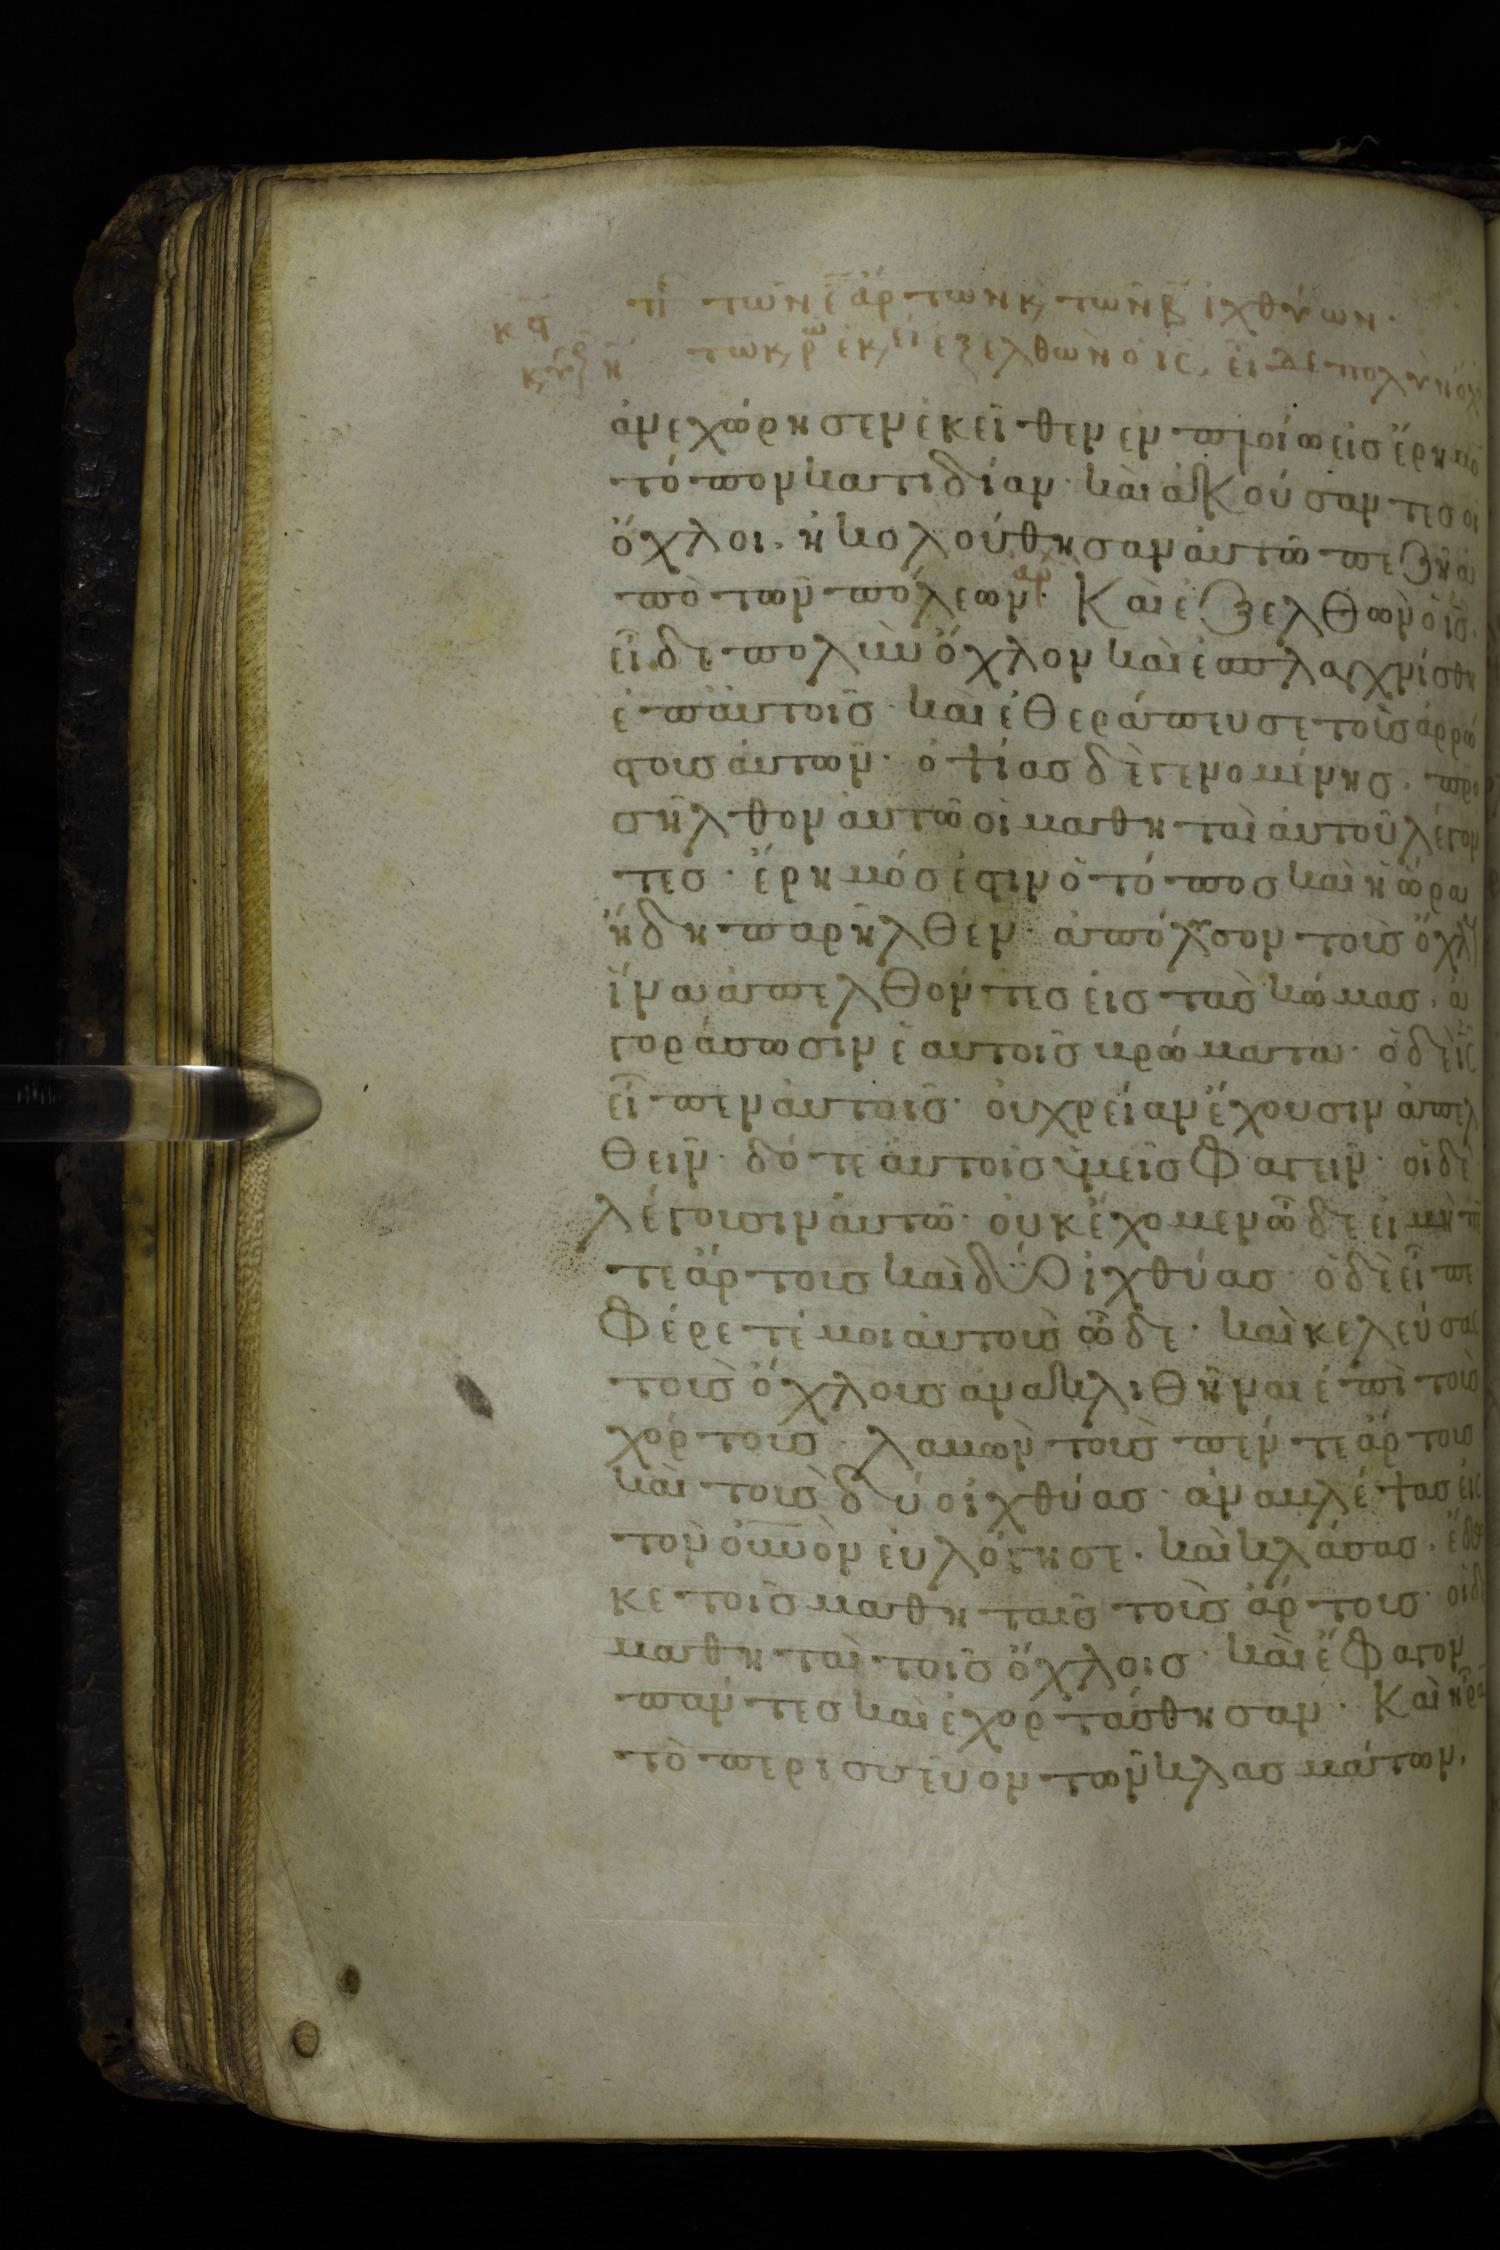 κα τι των ε αρτων κ, των β ιχθύων.
κυρ η τω κ,ρω εκ,ει εξελθων ο ις, ειδε πολυν όχ
ἀνεχώρησεν ἐκεῖθεν ἐν πλοίω εἰς ἔρημο
τόπον κατιδίαν· καὶ ἀκούσαντες οι
ὄχλοι. ἠκολούθησαν αὐτῶ πεζῆ ἀ
πὸ τῶν πόλεων· Καὶ ἐξελθὼν ὁ ις·
εἶδε πολὺν ὄχλον καὶ ἐσπλαγχνίσθη
ἐπ' αὐτοῖς· καὶ ἐθεράπευσε τοὺς ἀρρώ
στους αὐτῶν· ὀψίας δὲ γενομένης· προ
σῆλθον αὐτῶ οἱ μαθηταὶ αὐτοῦ λέγον
τες· ἔρημός ἐστιν ὁ τόπος καὶ ἡ ὥρα
ἤδη παρῆλθεν· ἀπόλυσον τοὺς ὄχλους
ἵνα ἀπελθόντες εἰς τὰς κώμας· ἀ
γοράσωσιν ἑαυτοῖς βρώματα· ὁ δὲ ις
εἶπεν αὐτοῖς· οὐ χρείαν ἔχουσιν ἀπελ
θεῖν· δότε αὐτοῖς ὑμεῖς φαγεῖν· οἱ δὲ
λέγουσιν αὐτῶ· οὐκ ἔχομεν ὧδε εἰ μὴ πέ
τε ἄρτους καὶ δύο ἰχθύας· ὁ δὲ εἶπε
φέρετέ μοι αὐτοὺς ὧδε· καὶ κελεύσας
τοὺς ὄχλους ἀνακλιθῆναι ἐπὶ τοὺς
χόρτους· λαβὼν τοὺς πέντε ἄρτους
καὶ τοὺς δύο ἰχθύας· ἀναβλέψας εἰς
τὸν ουνὸν εὐλόγησε· καὶ κλάσας· ἔδω
κε τοῖς μαθηταῖς τοὺς ἄρτους· οἱ δὲ
μαθηταὶ τοῖς ὄχλοις· καὶ ἔφαγον
πάντες καὶ ἐχορτάσθησαν· Καὶ ἦρα
τὸ περισσεῦον τῶν κλασμάτων,